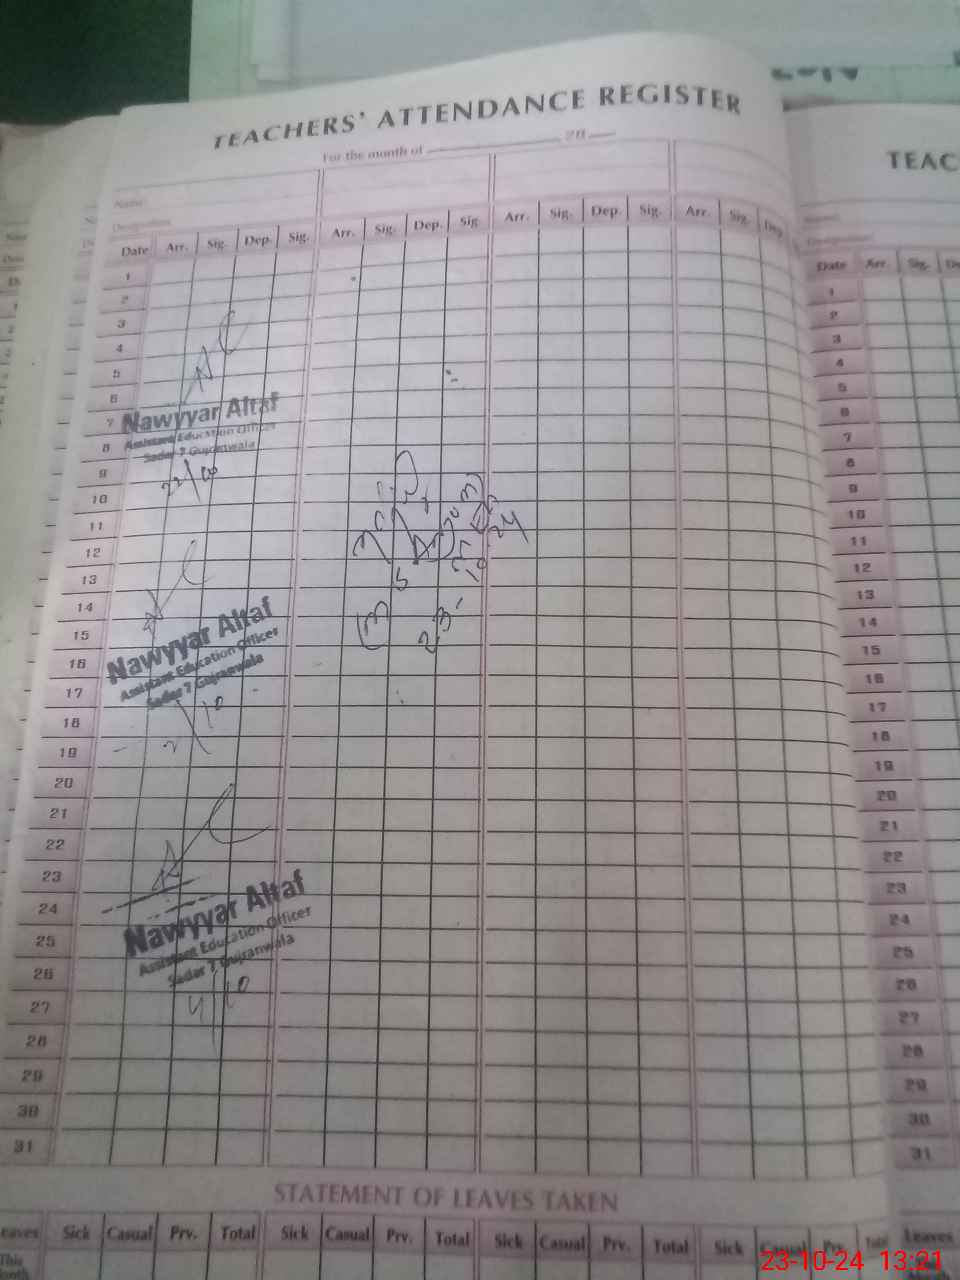 TEACHERS' ATTENDANCE REGISTER
For the month of 20
Name
Designation
Date Arr. Sig. Dep. Sig. Arr. Sig. Dep. Sig. Arr. Sig. Dep. Sig. Arr. Sig. Dep.
1
2
3
4
5
6
7
8
9
10
11
12
13
14
15
16
17
18
19
20
21
22
23
24
25
26
27
28
29
30
31
Nawyyar Altaf
Assistant Education Officer
Sadar 7 Gujranwala
22/10
Nawyyar Altaf
Assistant Education Officer
Sadar 7 Gujranwala
/10
Nawyyar Altaf
Assistant Education Officer
Sadar 7 Gujranwala
4/10
STATEMENT OF LEAVES TAKEN
Leaves Sick Casual Prv. Total Sick Casual Prv. Total Sick Casual Prv. Total Sick Casual Prv. Total
This
TEAC
Date Arr. Sig.
1
2
3
4
5
6
7
8
9
10
11
12
13
14
15
16
17
18
19
20
21
22
23
24
25
26
27
28
29
30
31
Leaves
23-10-24 13:21